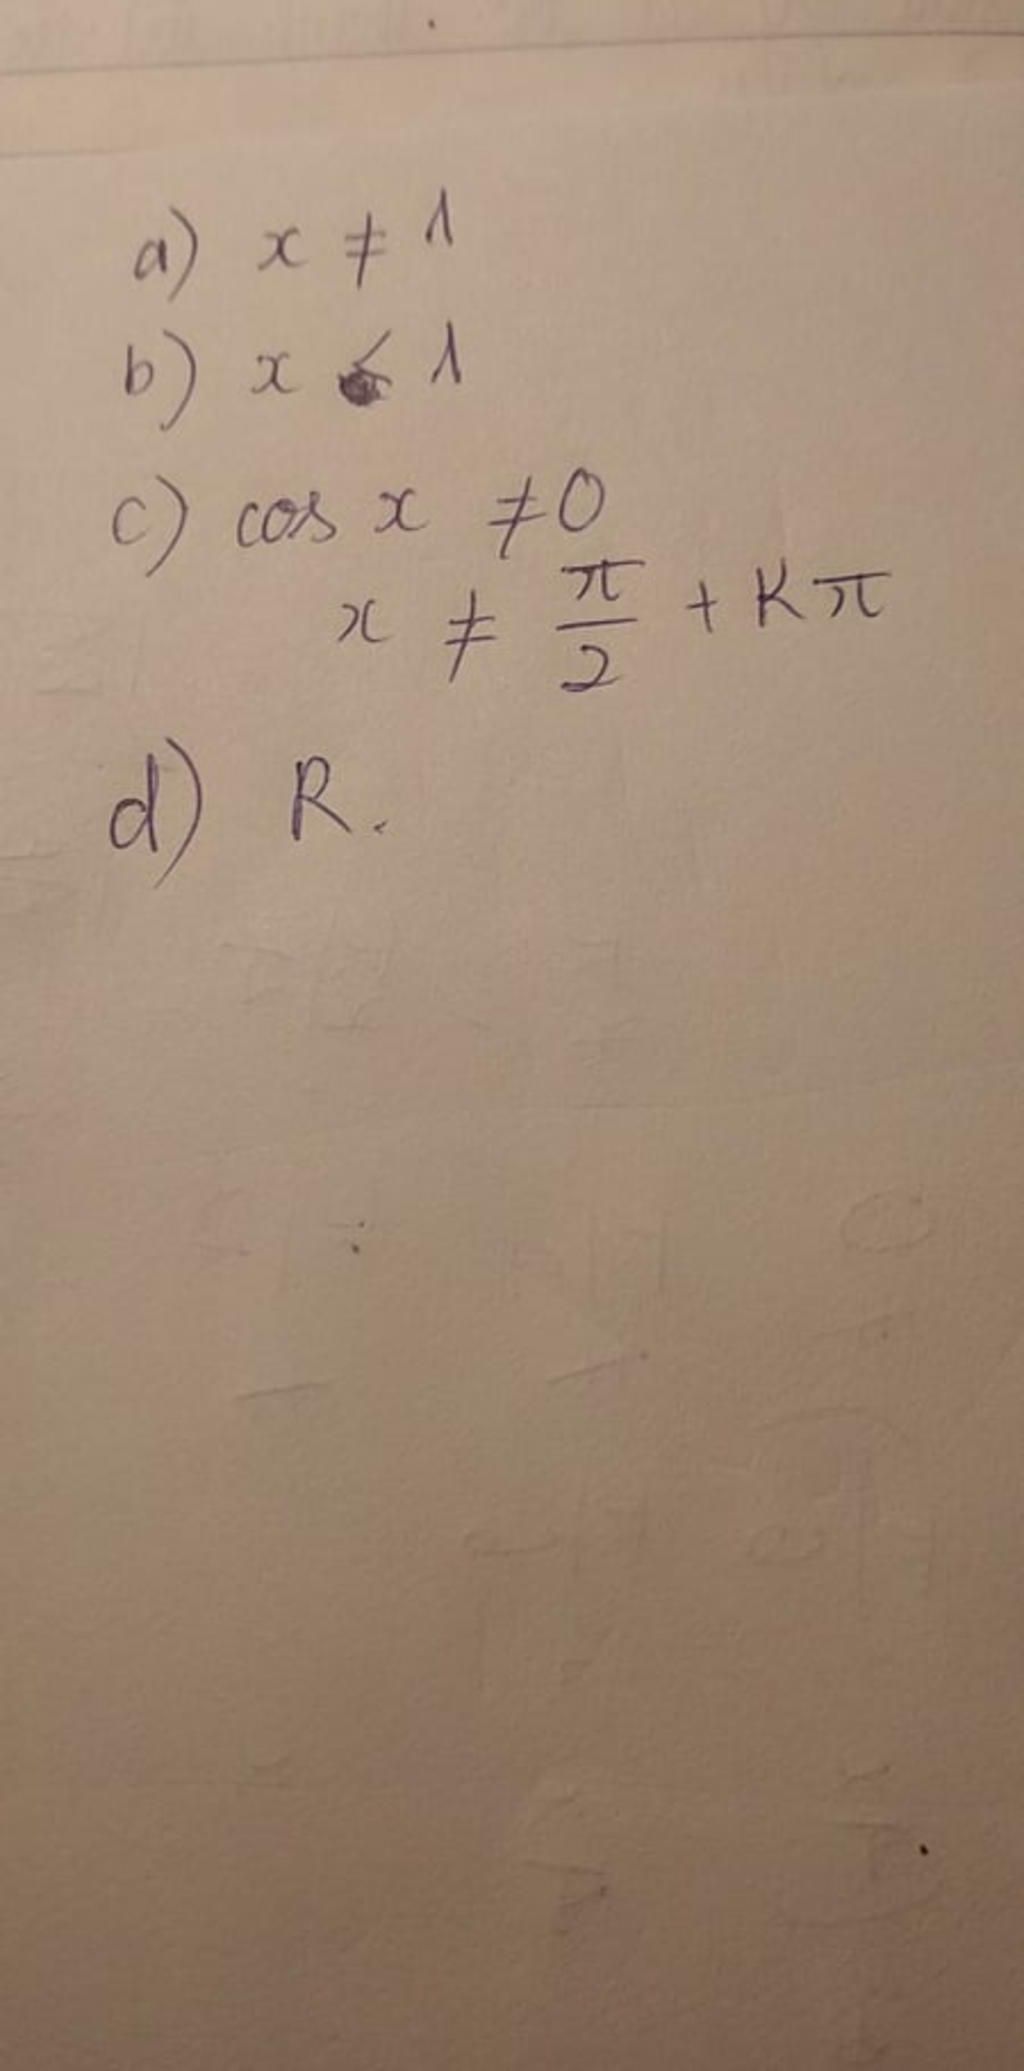 a) x ≠ 1
b) x < 1
c) cos x ≠ 0
x ≠ π/2 + Kπ
d) R.